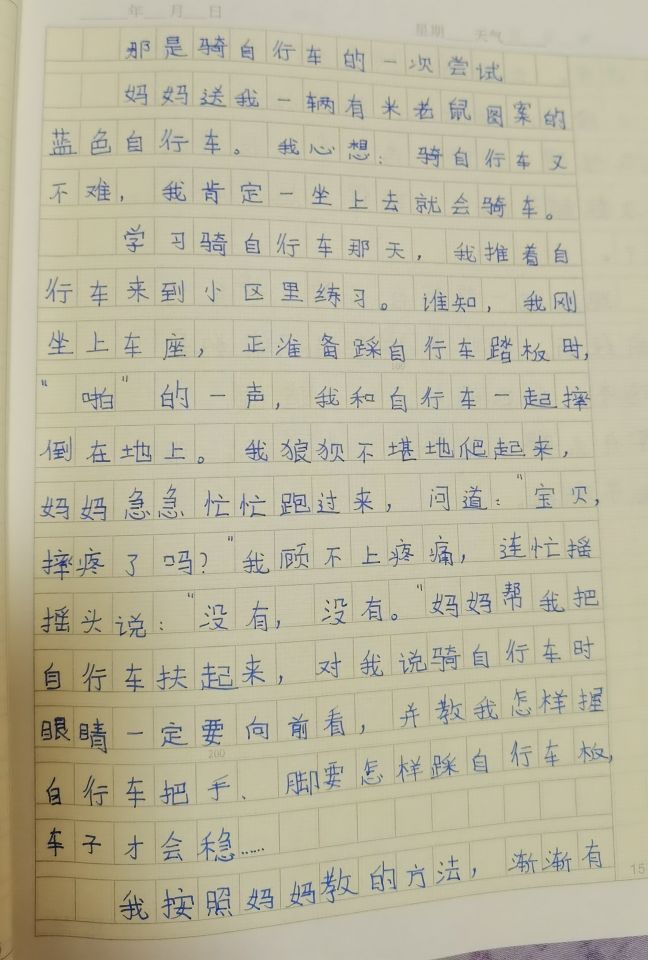 年 月 日
星期 天气
那是骑自行车的一次尝试
妈妈送我一辆有米老鼠图案的
蓝色自行车。我心想：骑自行车又
不难，我肯定一坐上去就会骑车。
学习骑自行车那天，我推着自
行车来到小区里练习。谁知，我刚
坐上车座，正准备踩自行车踏板时，
100
“啪”的一声，我和自行车一起摔
倒在地上。我狼狈不堪地爬起来，
妈妈急急忙忙跑过来，问道：“宝贝，
摔疼了吗？”我顾不上疼痛，连忙摇
摇头说：“没有，没有。”妈妈帮我把
自行车扶起来，对我说骑自行车时
眼睛一定要向前看，并教我怎样握
200
自行车把手、脚要怎样踩自行车板，
车子才会稳……
我按照妈妈教的方法，渐渐有
15